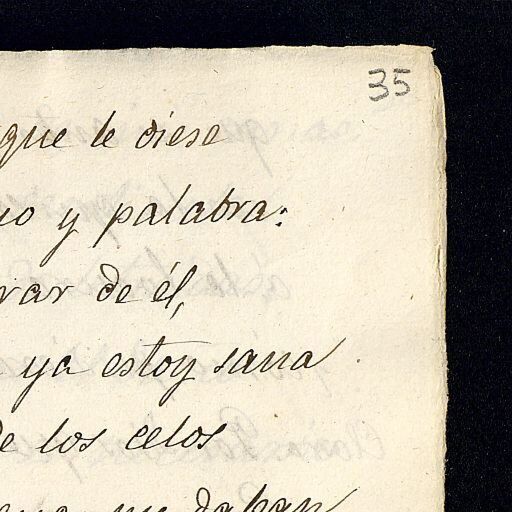 35
que le diese
y palabra:
rar de él,
ya estoy sana
de los celos
me daban